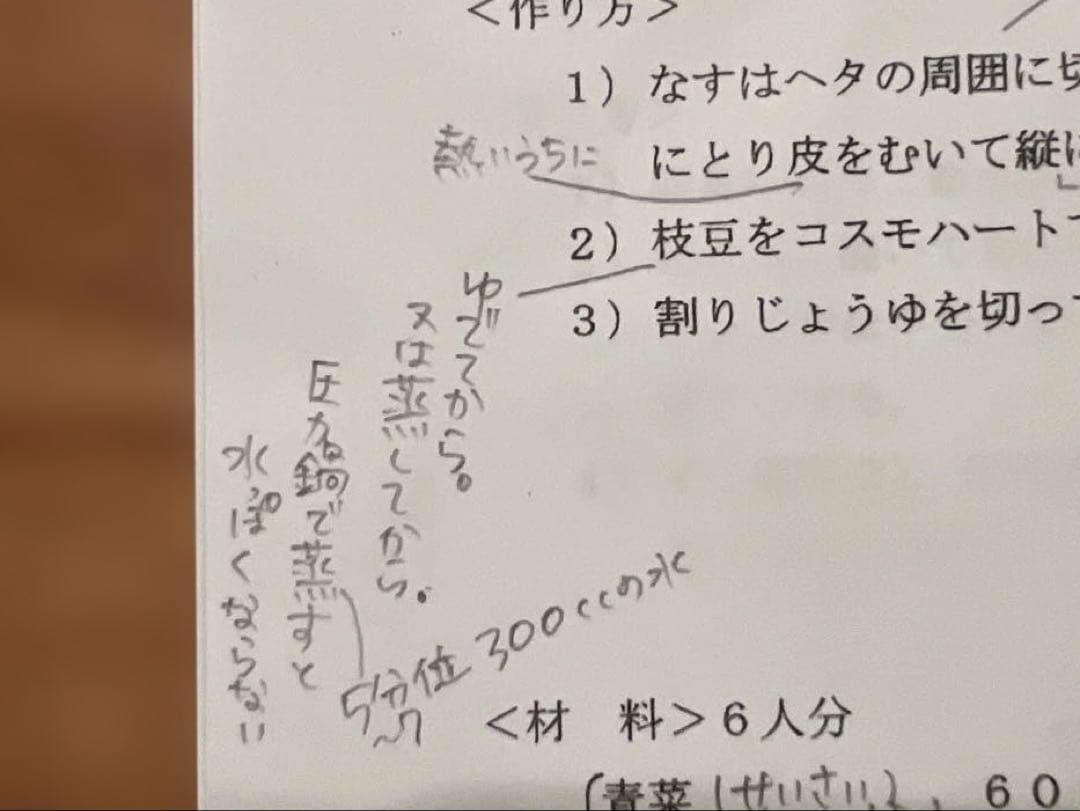 <作り方>
1）なすはヘタの周囲に切
熱いうちに
にとり皮をむいて縦に
2）枝豆をコスモハートで
3）割りじょうゆを切って
ゆでてから。
又は蒸してから。
圧力鍋で蒸すと
水っぽくならない
5分位 300ccの水
<材 料>6人分
(青菜(せいさい) 60